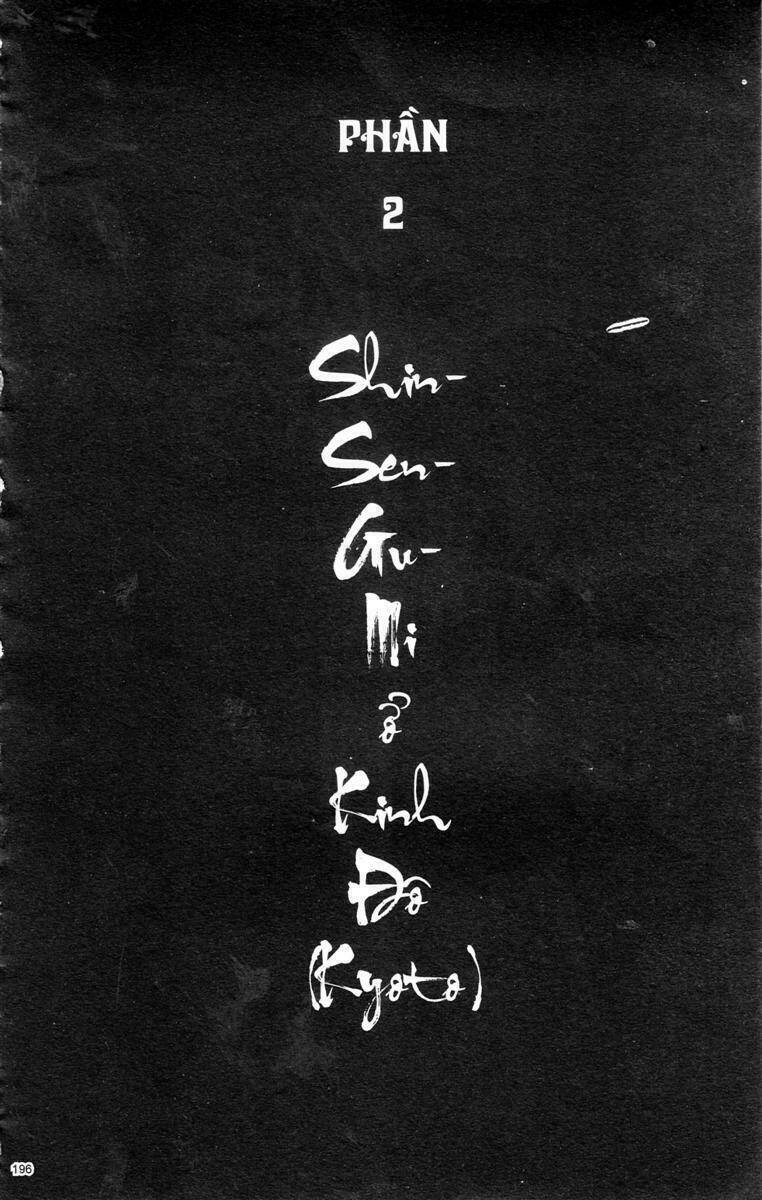 PHẦN
2
Shin-
Sen-
Gu-
Mi
ở
Kinh
Đô
(Kyoto)
196